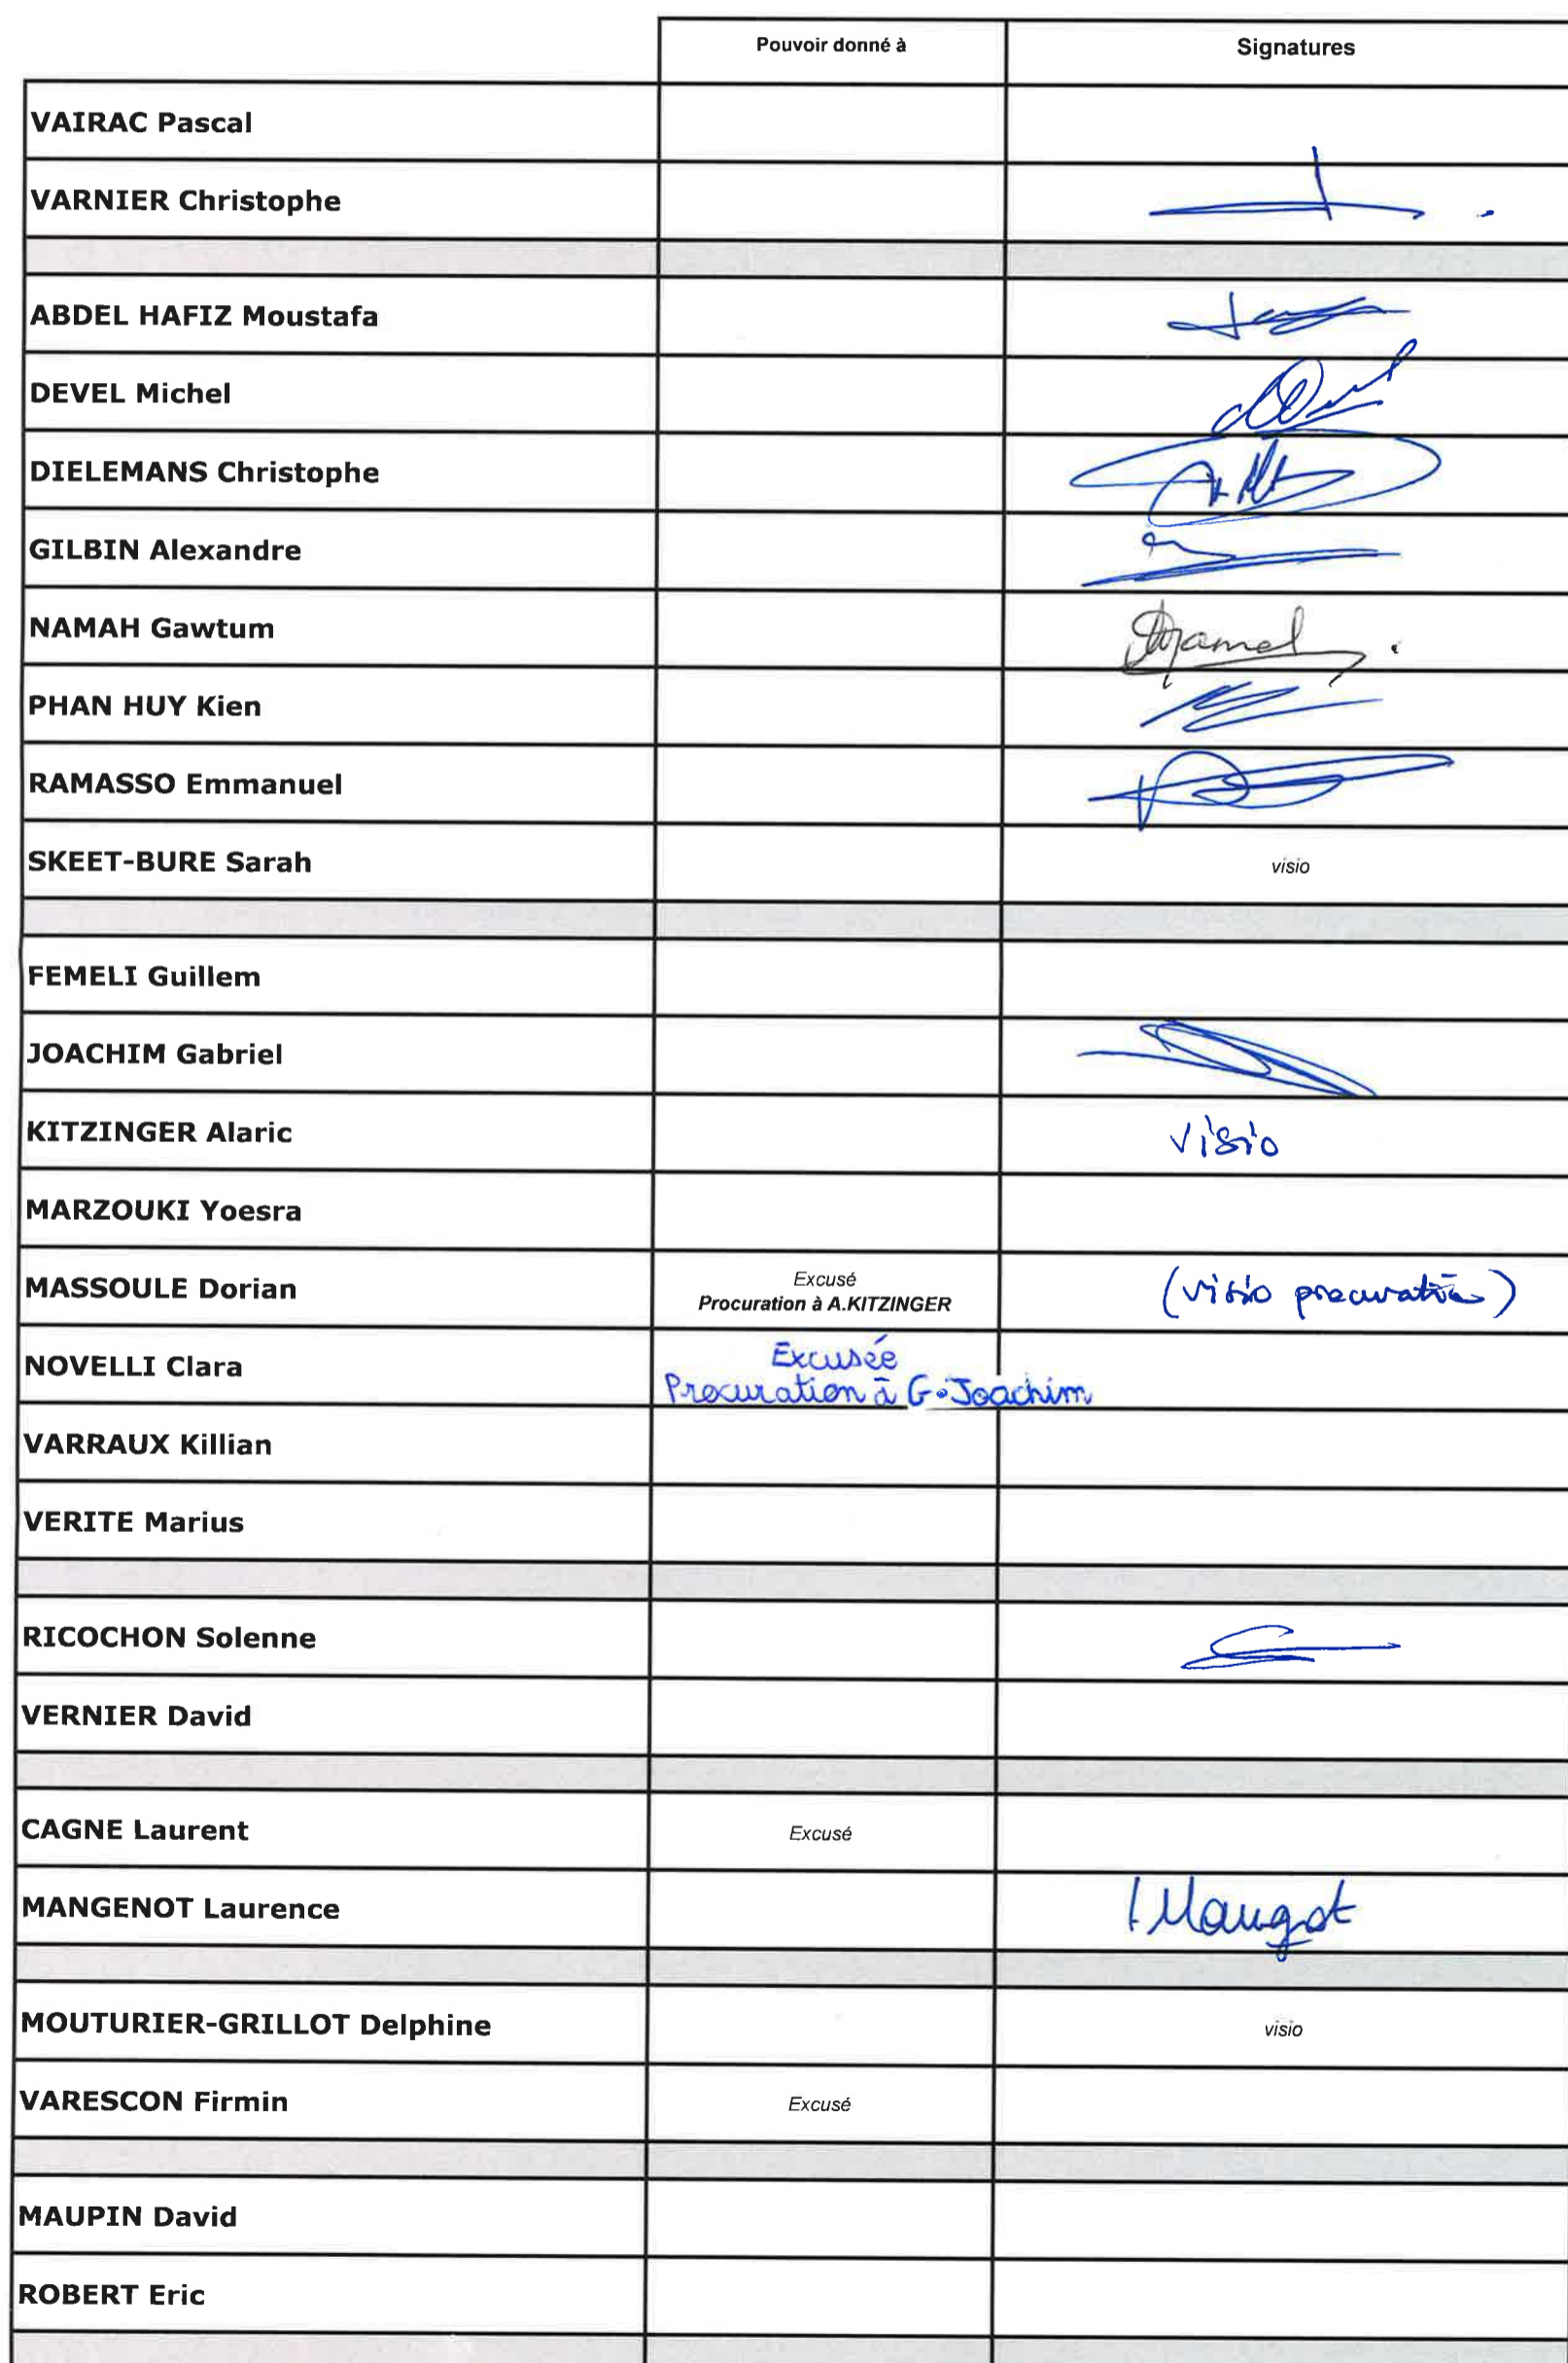 Pouvoir donné à Signatures
VAIRAC Pascal
VARNIER Christophe
ABDEL HAFIZ Moustafa
DEVEL Michel
DIELEMANS Christophe
GILBIN Alexandre
NAMAH Gawtum
PHAN HUY Kien
RAMASSO Emmanuel
SKEET-BURE Sarah visio
FEMELI Guillem
JOACHIM Gabriel
KITZINGER Alaric visio
MARZOUKI Yoesra
MASSOULE Dorian Excusé (visio procuration)
Procuration à A.KITZINGER
NOVELLI Clara Excusée
Procuration à G. Joachim
VARRAUX Killian
VERITE Marius
RICOCHON Solenne
VERNIER David
CAGNE Laurent Excusé
MANGENOT Laurence
MOUTURIER-GRILLOT Delphine visio
VARESCON Firmin Excusé
MAUPIN David
ROBERT Eric